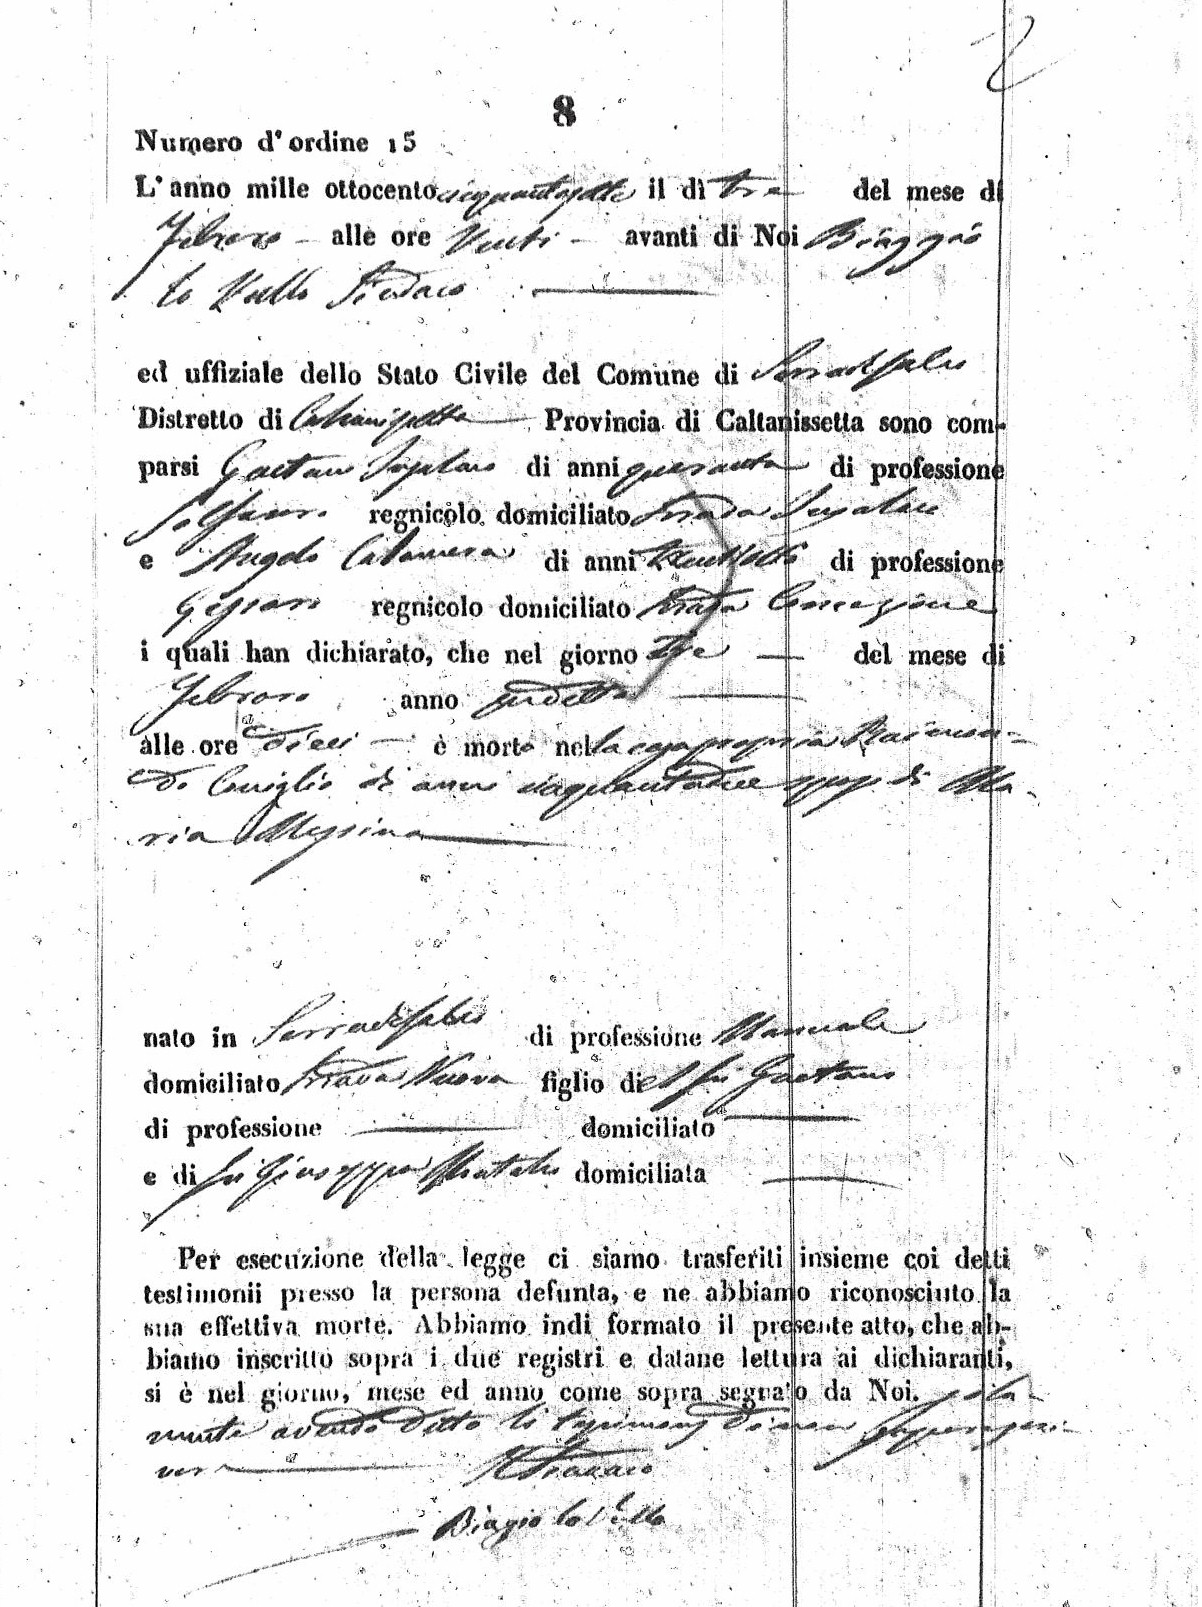 2
8
Numero d' ordine 15
L' anno mille ottocento cinquantasette il dì tre del mese di
Febraro alle ore Venti avanti di Noi Biaggio
Lo Vullo Sindaco
ed uffiziale dello Stato Civile del Comune di Serradifalco
Distretto di Caltanissetta Provincia di Caltanissetta sono com-
parsi Gaetano di anni quaranta di professione
Solfaro regnicolo domiciliato strada
e Angelo Calamera di anni Ventiotto di professione
Gessaro regnicolo domiciliato strada Concezione
i quali han dichiarato, che nel giorno Tre del mese di
Febraro anno sudetto
alle ore dieci è morto nella casa propria
do Coniglio di anni sposo di Ma-
ria Messina
nato in Serradifalco di professione Manuale
domiciliato strada Nuova figlio del fu Gaetano
di professione domiciliato
e di fu Giuseppa domiciliata
Per esecuzione della legge ci siamo trasferiti insieme coi detti
testimonii presso la persona defunta, e ne abbiamo riconosciuto la
sua effettiva morte. Abbiamo indi formato il presente atto, che ab-
biamo inscritto sopra i due registri e datane lettura ai dichiaranti,
si è nel giorno, mese ed anno come sopra segnato da Noi. sola-
mente avendo detto li testimonj di non saper scri-
vere Il Sindaco
Biagio lo Vullo